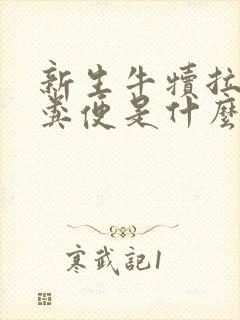 新生牛犊拉
粪便是什麼
寒武記1